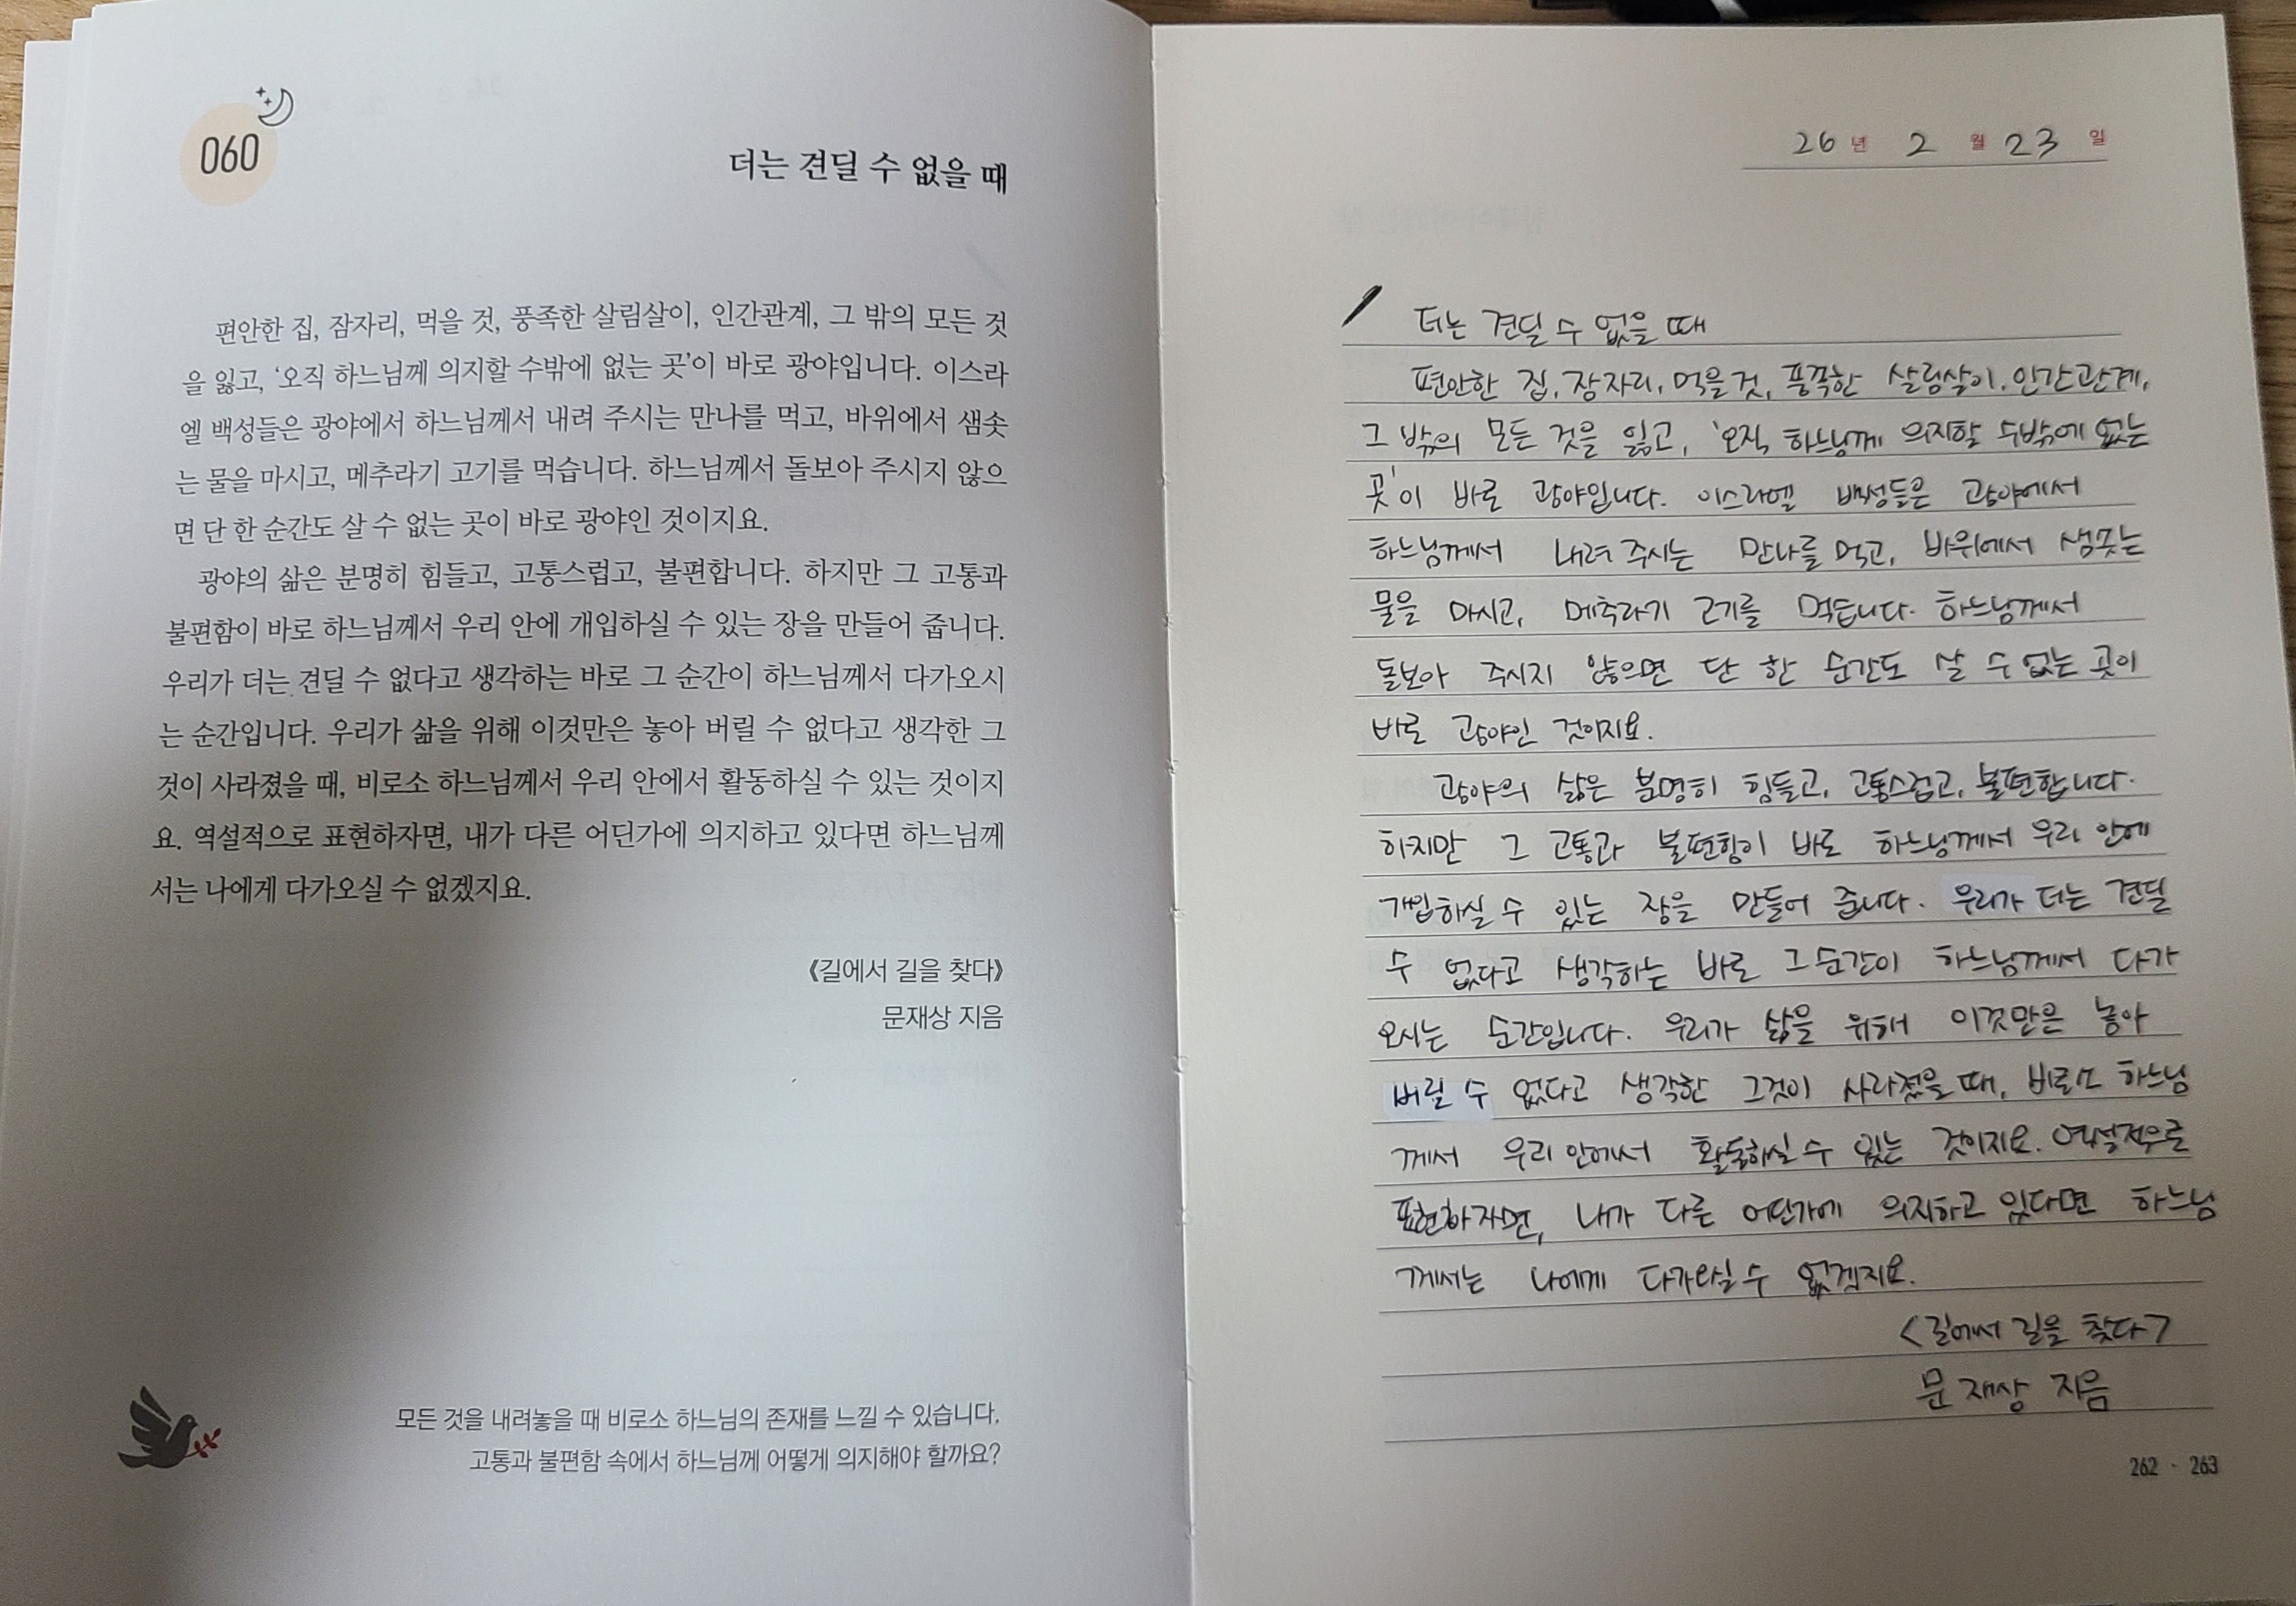 060
더는 견딜 수 없을 때
편안한 집, 잠자리, 먹을 것, 풍족한 살림살이, 인간관계, 그 밖의 모든 것
을 잃고, ‘오직 하느님께 의지할 수밖에 없는 곳’이 바로 광야입니다. 이스라
엘 백성들은 광야에서 하느님께서 내려 주시는 만나를 먹고, 바위에서 샘솟
는 물을 마시고, 메추라기 고기를 먹습니다. 하느님께서 돌보아 주시지 않으
면 단 한 순간도 살 수 없는 곳이 바로 광야인 것이지요.
광야의 삶은 분명히 힘들고, 고통스럽고, 불편합니다. 하지만 그 고통과
불편함이 바로 하느님께서 우리 안에 개입하실 수 있는 장을 만들어 줍니다.
우리가 더는 견딜 수 없다고 생각하는 바로 그 순간이 하느님께서 다가오시
는 순간입니다. 우리가 삶을 위해 이것만은 놓아 버릴 수 없다고 생각한 그
것이 사라졌을 때, 비로소 하느님께서 우리 안에서 활동하실 수 있는 것이지
요. 역설적으로 표현하자면, 내가 다른 어딘가에 의지하고 있다면 하느님께
서는 나에게 다가오실 수 없겠지요.
《길에서 길을 찾다》
문재상 지음
모든 것을 내려놓을 때 비로소 하느님의 존재를 느낄 수 있습니다.
고통과 불편함 속에서 하느님께 어떻게 의지해야 할까요?
26년 2월 23일
더는 견딜 수 없을 때
편안한 집, 잠자리, 먹을 것, 풍족한 살림살이, 인간관계,
그 밖의 모든 것을 잃고, ‘오직 하느님께 의지할 수밖에 없는
곳’이 바로 광야입니다. 이스라엘 백성들은 광야에서
하느님께서 내려 주시는 만나를 먹고, 바위에서 샘솟는
물을 마시고, 메추라기 고기를 먹습니다. 하느님께서
돌보아 주시지 않으면 단 한 순간도 살 수 없는 곳이
바로 광야인 것이지요.
광야의 삶은 분명히 힘들고, 고통스럽고, 불편합니다.
하지만 그 고통과 불편함이 바로 하느님께서 우리 안에
개입하실 수 있는 장을 만들어 줍니다. 우리가 더는 견딜
수 없다고 생각하는 바로 그 순간이 하느님께서 다가
오시는 순간입니다. 우리가 삶을 위해 이것만은 놓아
버릴 수 없다고 생각한 그것이 사라졌을 때, 비로소 하느님
께서 우리 안에서 활동하실 수 있는 것이지요. 역설적으로
표현하자면, 내가 다른 어딘가에 의지하고 있다면 하느님
께서는 나에게 다가오실 수 없겠지요.
<길에서 길을 찾다>
문재상 지음
262 · 263